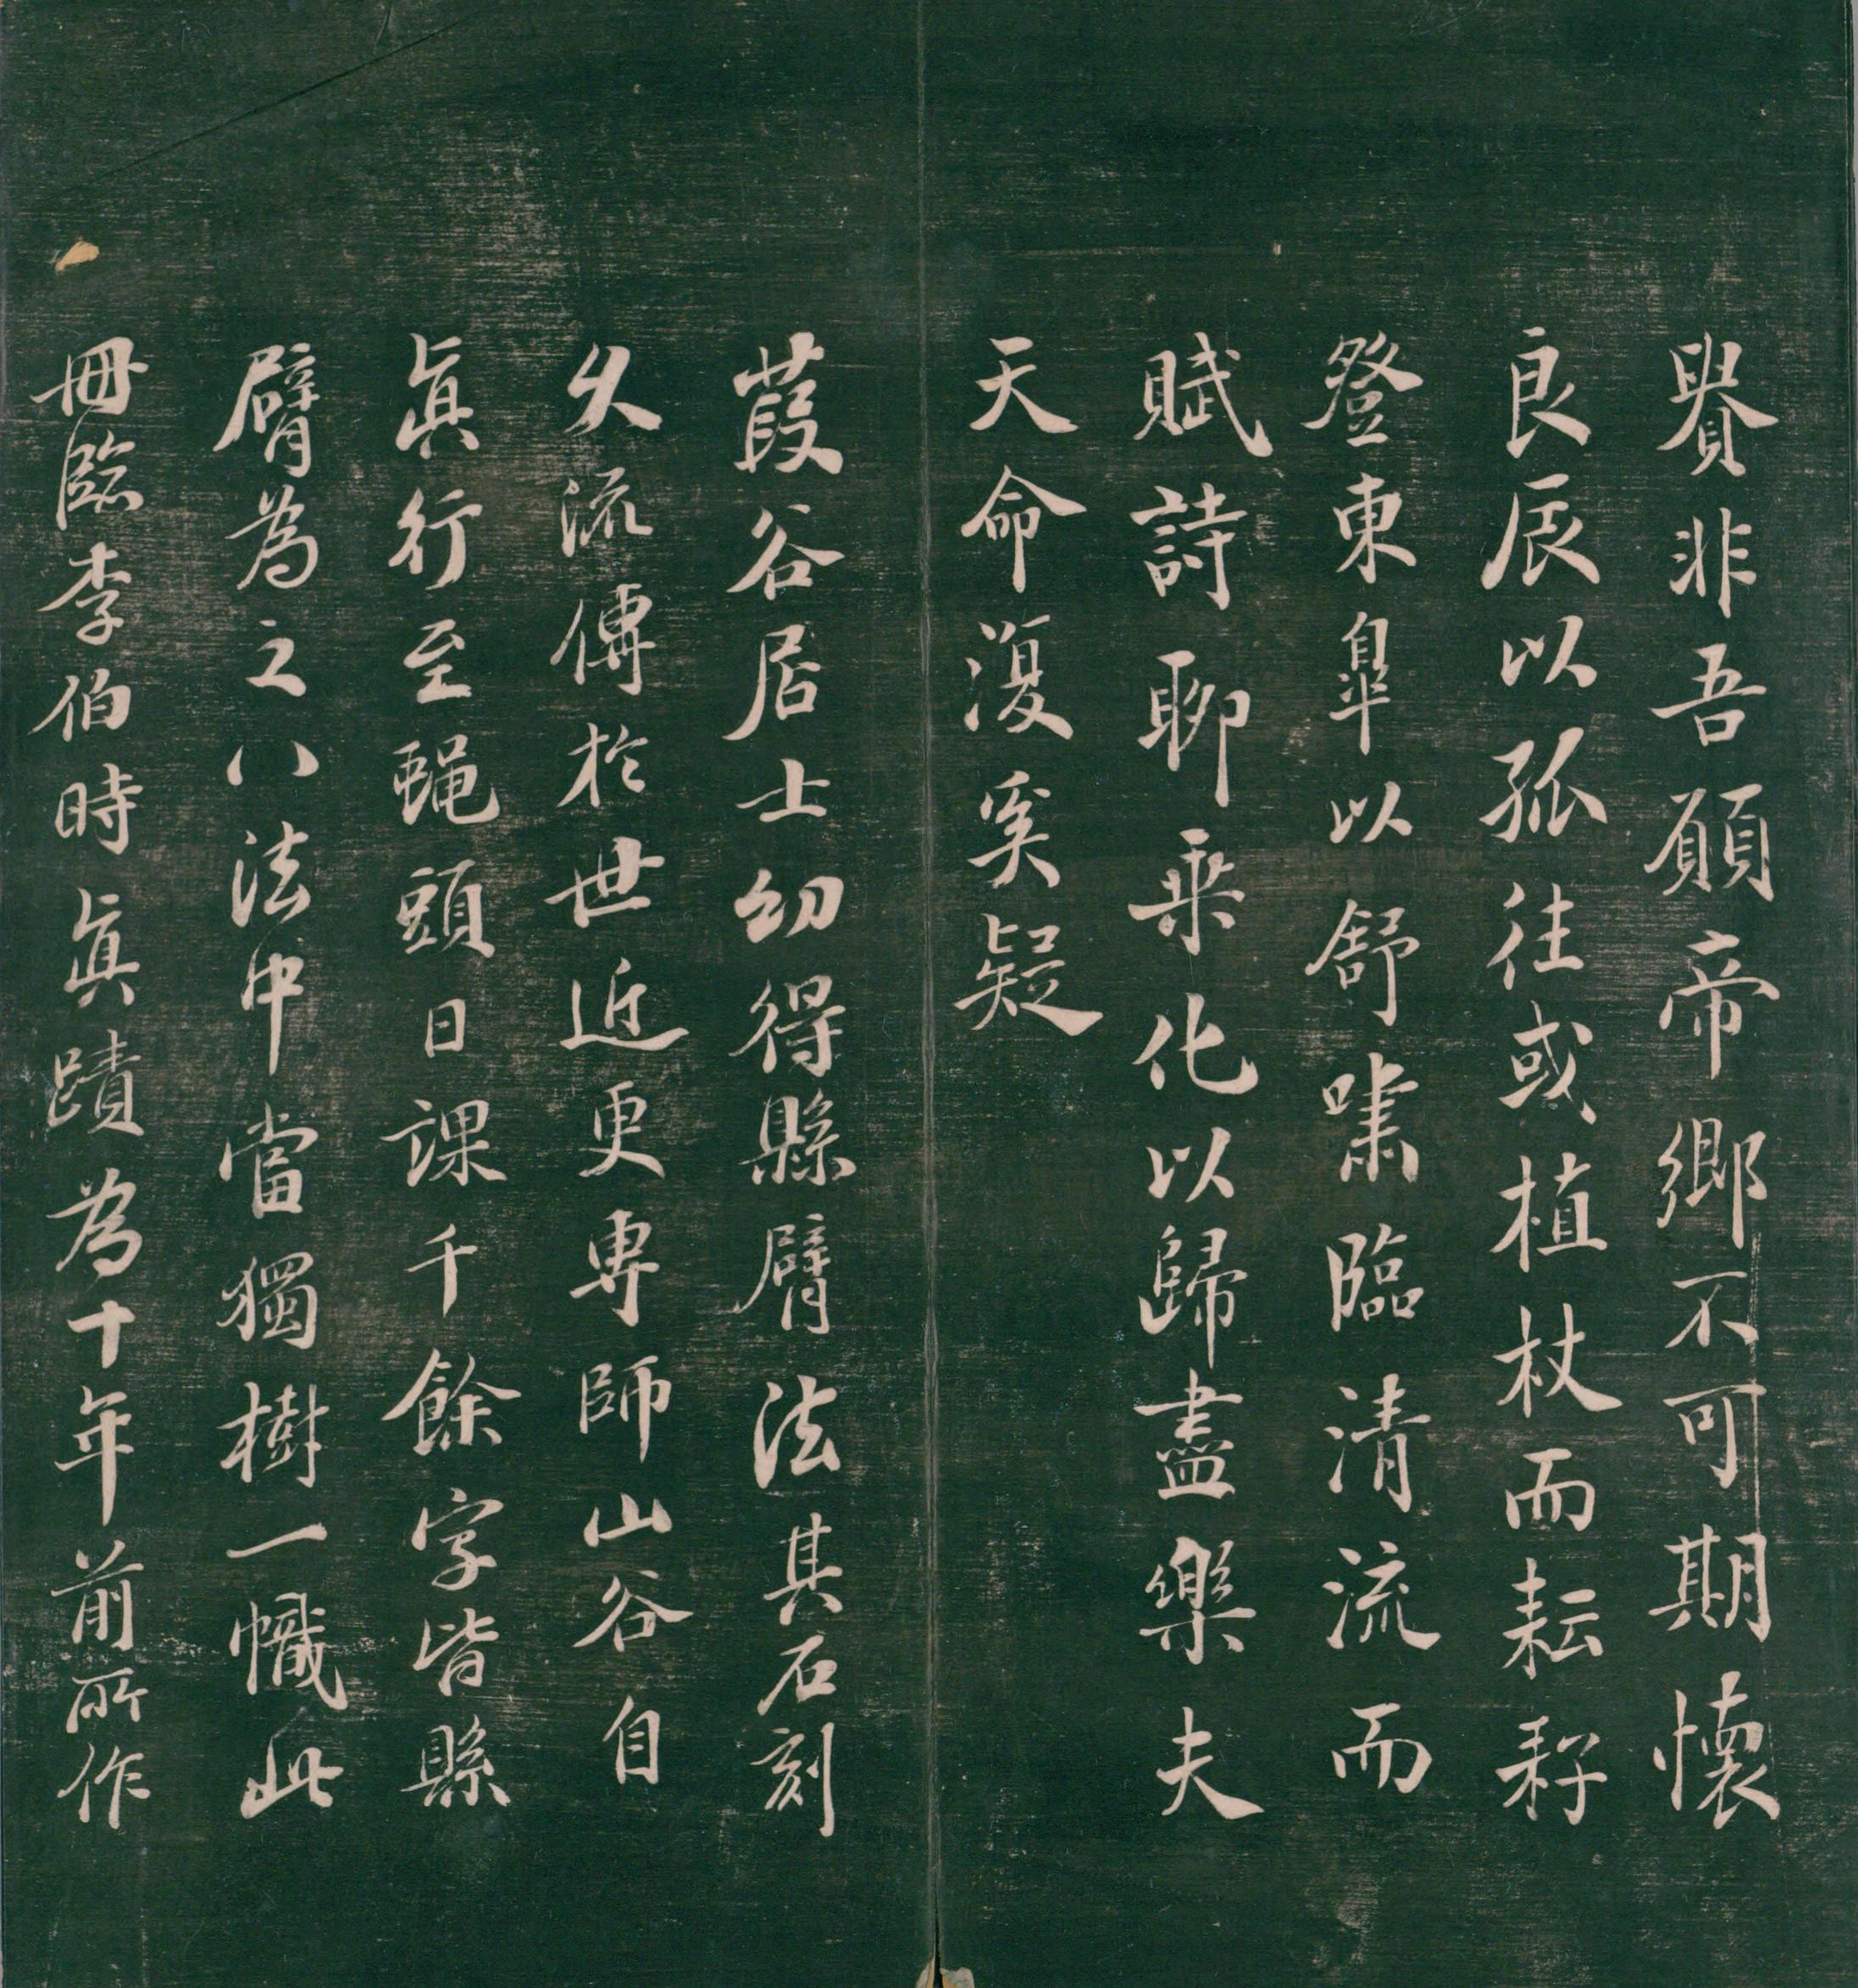 貴非吾願帝鄉不可期懷
良辰以孤往或植杖而耘耔
登東皐以舒嘯臨清流而
賦詩聊乘化以歸盡樂夫
天命復奚疑
葭谷居士幼得縣臂法其石刻
久流傳於世近更專師山谷自
眞行至蠅頭日課千餘字皆縣
臂為之八法中當獨樹一幟此
冊臨李伯時眞蹟為十年前所作